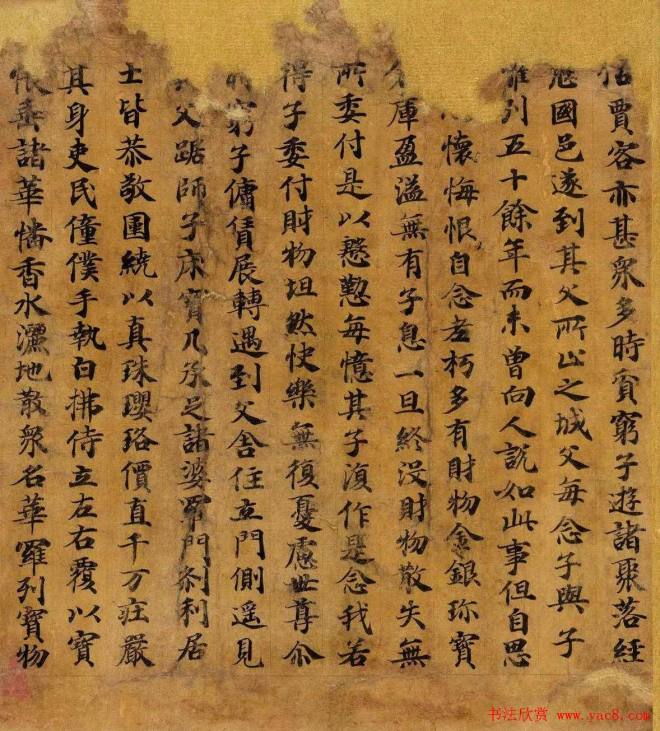 估賈客亦甚衆多時貧窮子遊諸聚落經
歷國邑遂到其父所止之城父每念子與子
離別五十餘年而未曾向人說如此事但自思
懷悔恨自念老朽多有財物金銀珎寶
庫盈溢無有子息一旦終没財物散失無
所委付是以慇懃每憶其子復作是念我若
得子委付財物坦然快樂無復憂慮世尊尒
窮子傭賃展轉遇到父舍住立門側遥見
父踞師子床寶几承足諸婆羅門刹利居
士皆恭敬圍繞以真珠瓔珞價直千万莊嚴
其身吏民僮僕手執白拂侍立左右覆以寶
帳垂諸華幡香水灑地散衆名華羅列寶物
书法欣赏 www.yac8.com